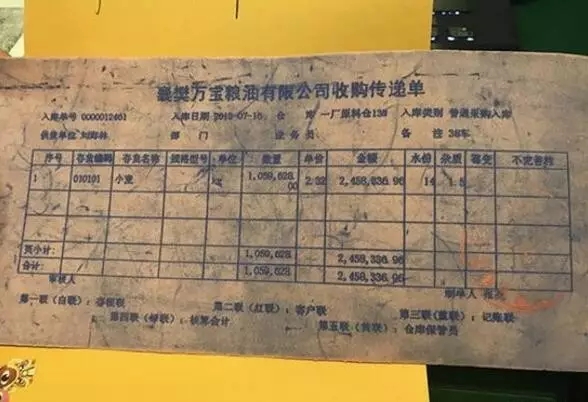 襄樊万宝粮油有限公司收购传递单
入库单号 0000012401 入库日期 2013-07-15 仓 库 一厂原料仓138 入库类别 普通采购入库
供货单位 刘海林 部 门 业务员 备注 38车
序号 存货编码 存货名称 规格型号 单位 数量 单价 金额 水份 杂质 霉变 不完善粒
1 010101 小麦 kg 1,059,628.00 2.32 2,458,336.96 14 1.5
页小计: 1,059,628. 2,458,336.96
合计: 1,059,628. 2,458,336.96
审核人 制单人
第一联(白联):存根联 第二联(红联):客户联 第三联(蓝联):记账联
第四联(绿联):核算会计 第五联(黄联):仓库保管员